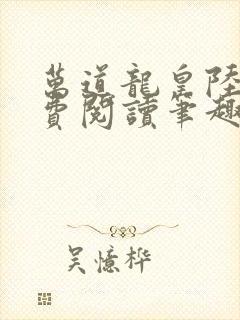 萬道龍皇陸
費閱讀筆趣
吳憶桦